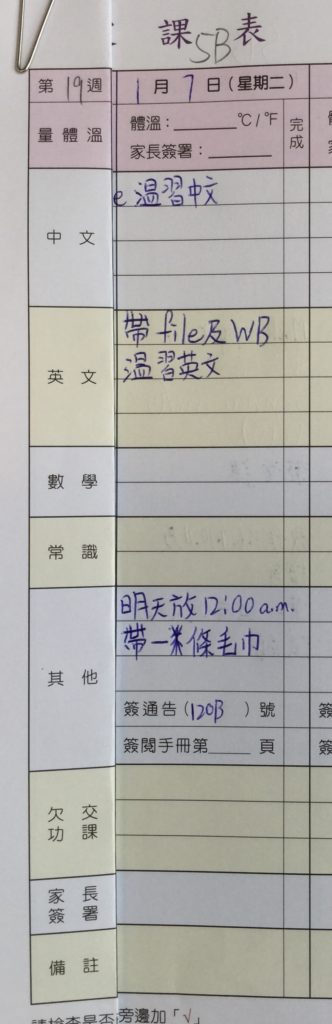 課表
5B
第19週 1月7日(星期二)
量體溫 體溫：______℃/℉ 完成
家長簽署：______
中文 e 温習中文
英文 帶file及WB
温習英文
數學
常識
其他 明天放12:00 a.m.
帶一條毛巾
簽通告(120B)號 簽
簽閱手冊第____頁 簽
欠交功課
家長簽署
備註
請檢查是否 旁邊加「√」